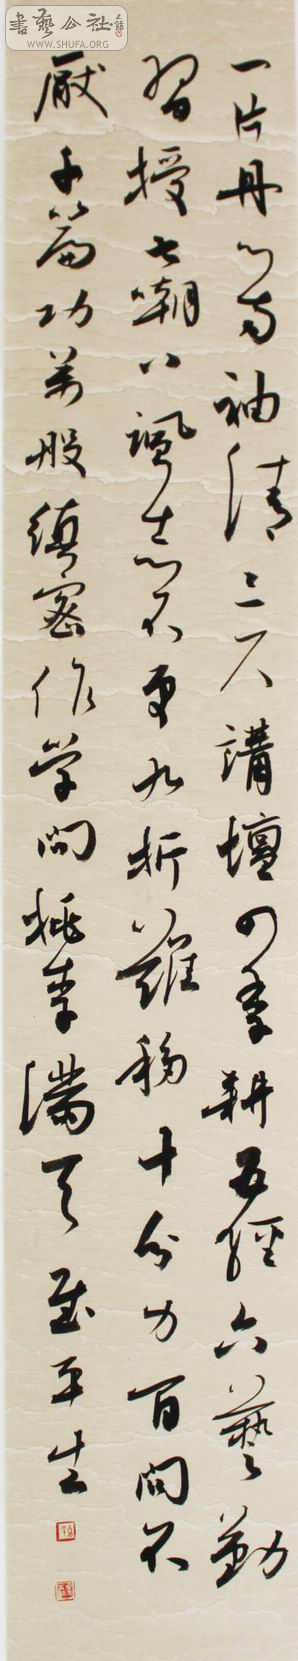 書藝公社
WWW.SHUFA.ORG
一片丹心両袖清三尺講壇四季耕五經六藝勤
習授七嘲八諷志不更九折難移十分力百問不
厭千篇功萬般縝密作学問桃李滿天慰平生